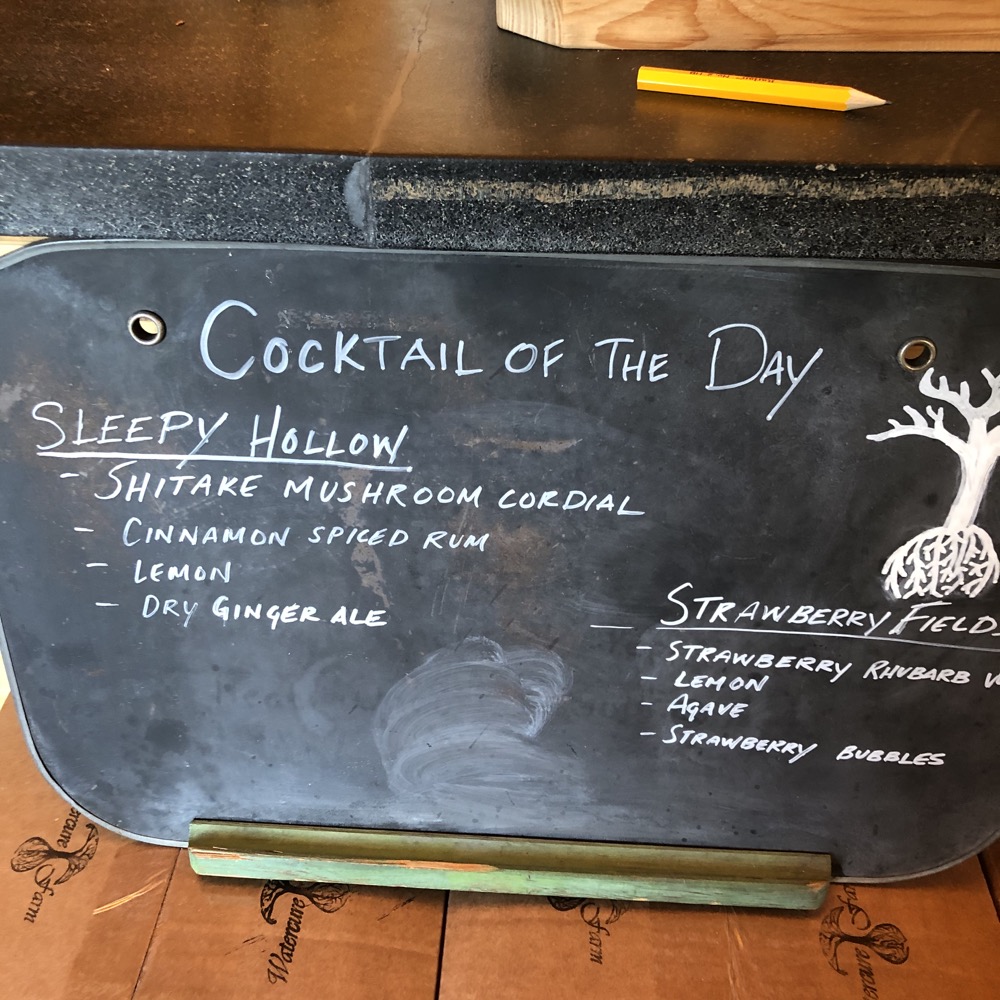 COCKTAIL OF THE DAY
SLEEPY HOLLOW
- SHITAKE MUSHROOM CORDIAL
- CINNAMON SPICED RUM
- LEMON
- DRY GINGER ALE
STRAWBERRY FIELDS
- STRAWBERRY RHUBARB
- LEMON
- AGAVE
- STRAWBERRY BUBBLES
Watercure Farm
Watercure Farm
Farm
Watercure Farm